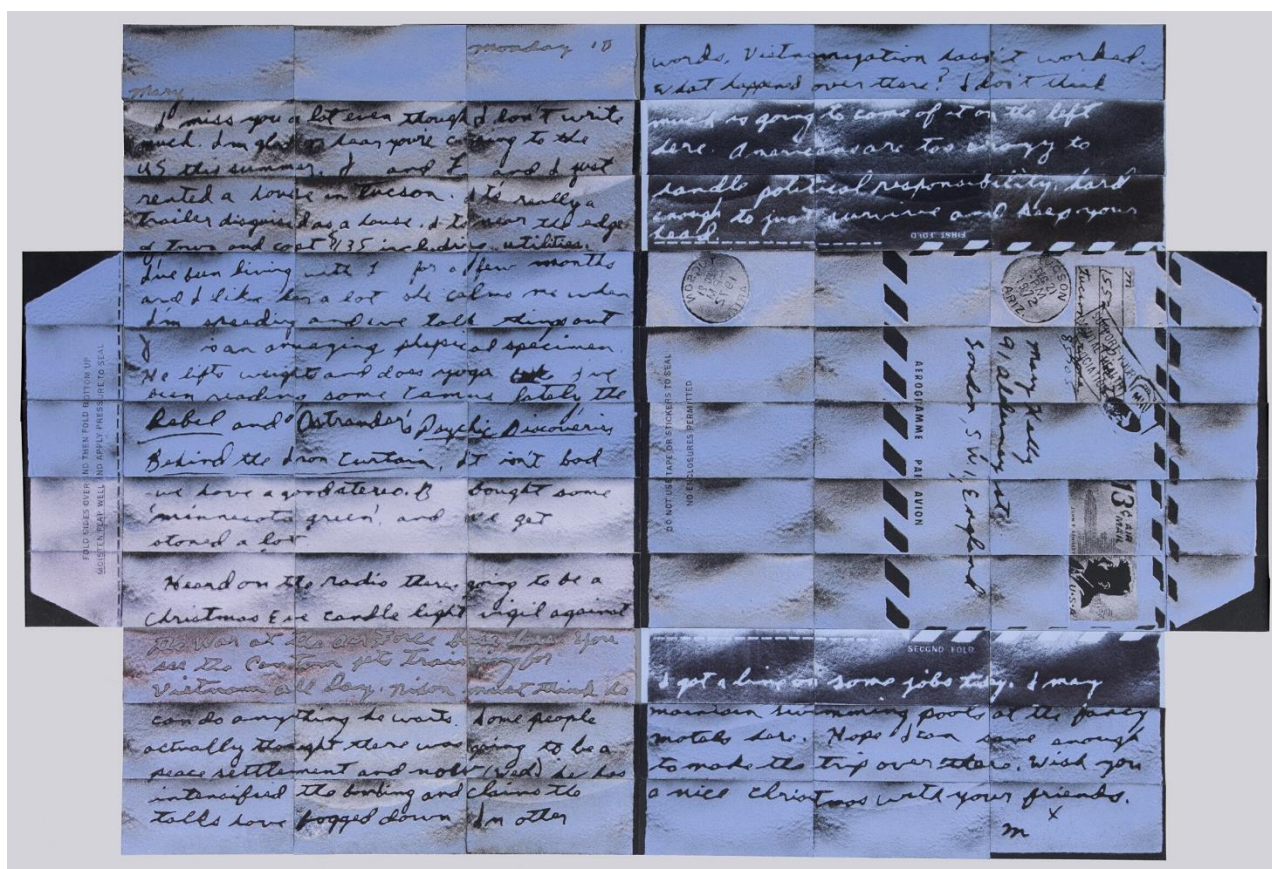 monday 18
Mary,
I miss you a lot even though I don't write
much. I'm glad to hear you're coming to the
US this summer. J and L and I just
rented a house in Tucson. It's really a
trailer disguised as a house. It's near the edge
of town and cost $135 including utilities.
I've been living with L for a few months
and I like her a lot she calms me when
I'm speeding and we talk things out
J is an amazing physical specimen.
He lifts weight and does yoga I've
been reading some Camus lately the
Rebel and Ostrander's Psychic Discoveries
Behind the Iron Curtain. It isn't bad
we have a good stereo. B bought some
'minnesota green', and we get
stoned a lot
Heard on the radio there going to be a
Christmas Eve candle light vigil against
the War at the air Force base here. You
see the Cambodian jets Training for
Vietnam all day. Nixon must think he
can do anything he wants. Some people
actually thought there was going to be a
peace settlement and now (Wed) he has
intensified the bombing and claims the
talks have fogged down In other
words, Vietnamization hasn't worked.
What happened over there? I don't think
much is going to come of it on the left
here. Americans are too crazy to
handle political responsibility. hard
enough to just survive and keep your
head
FIRST FOLD
TUCSON
ARIZ
TUCSON
ARIZ
m
155
Tucson
Mary Kelly
91 Aldermay
London, S.W.1, England
AEROGRAMME PAR AVION
13¢
AIR MAIL
JOHN F. KENNEDY
U·S·A
DO NOT USE TAPE OR STICKERS TO SEAL
NO ENCLOSURES PERMITTED
FOLD SIDES OVER AND THEN FOLD BOTTOM UP
MOISTEN FLAP WELL AND APPLY PRESSURE TO SEAL
SECOND FOLD
I got a line on some jobs today. I may
maintain swimming pools at the fancy
motels here. Hope I can save enough
to make the trip over there. Wish you
a nice Christmas with your friends.
x
m